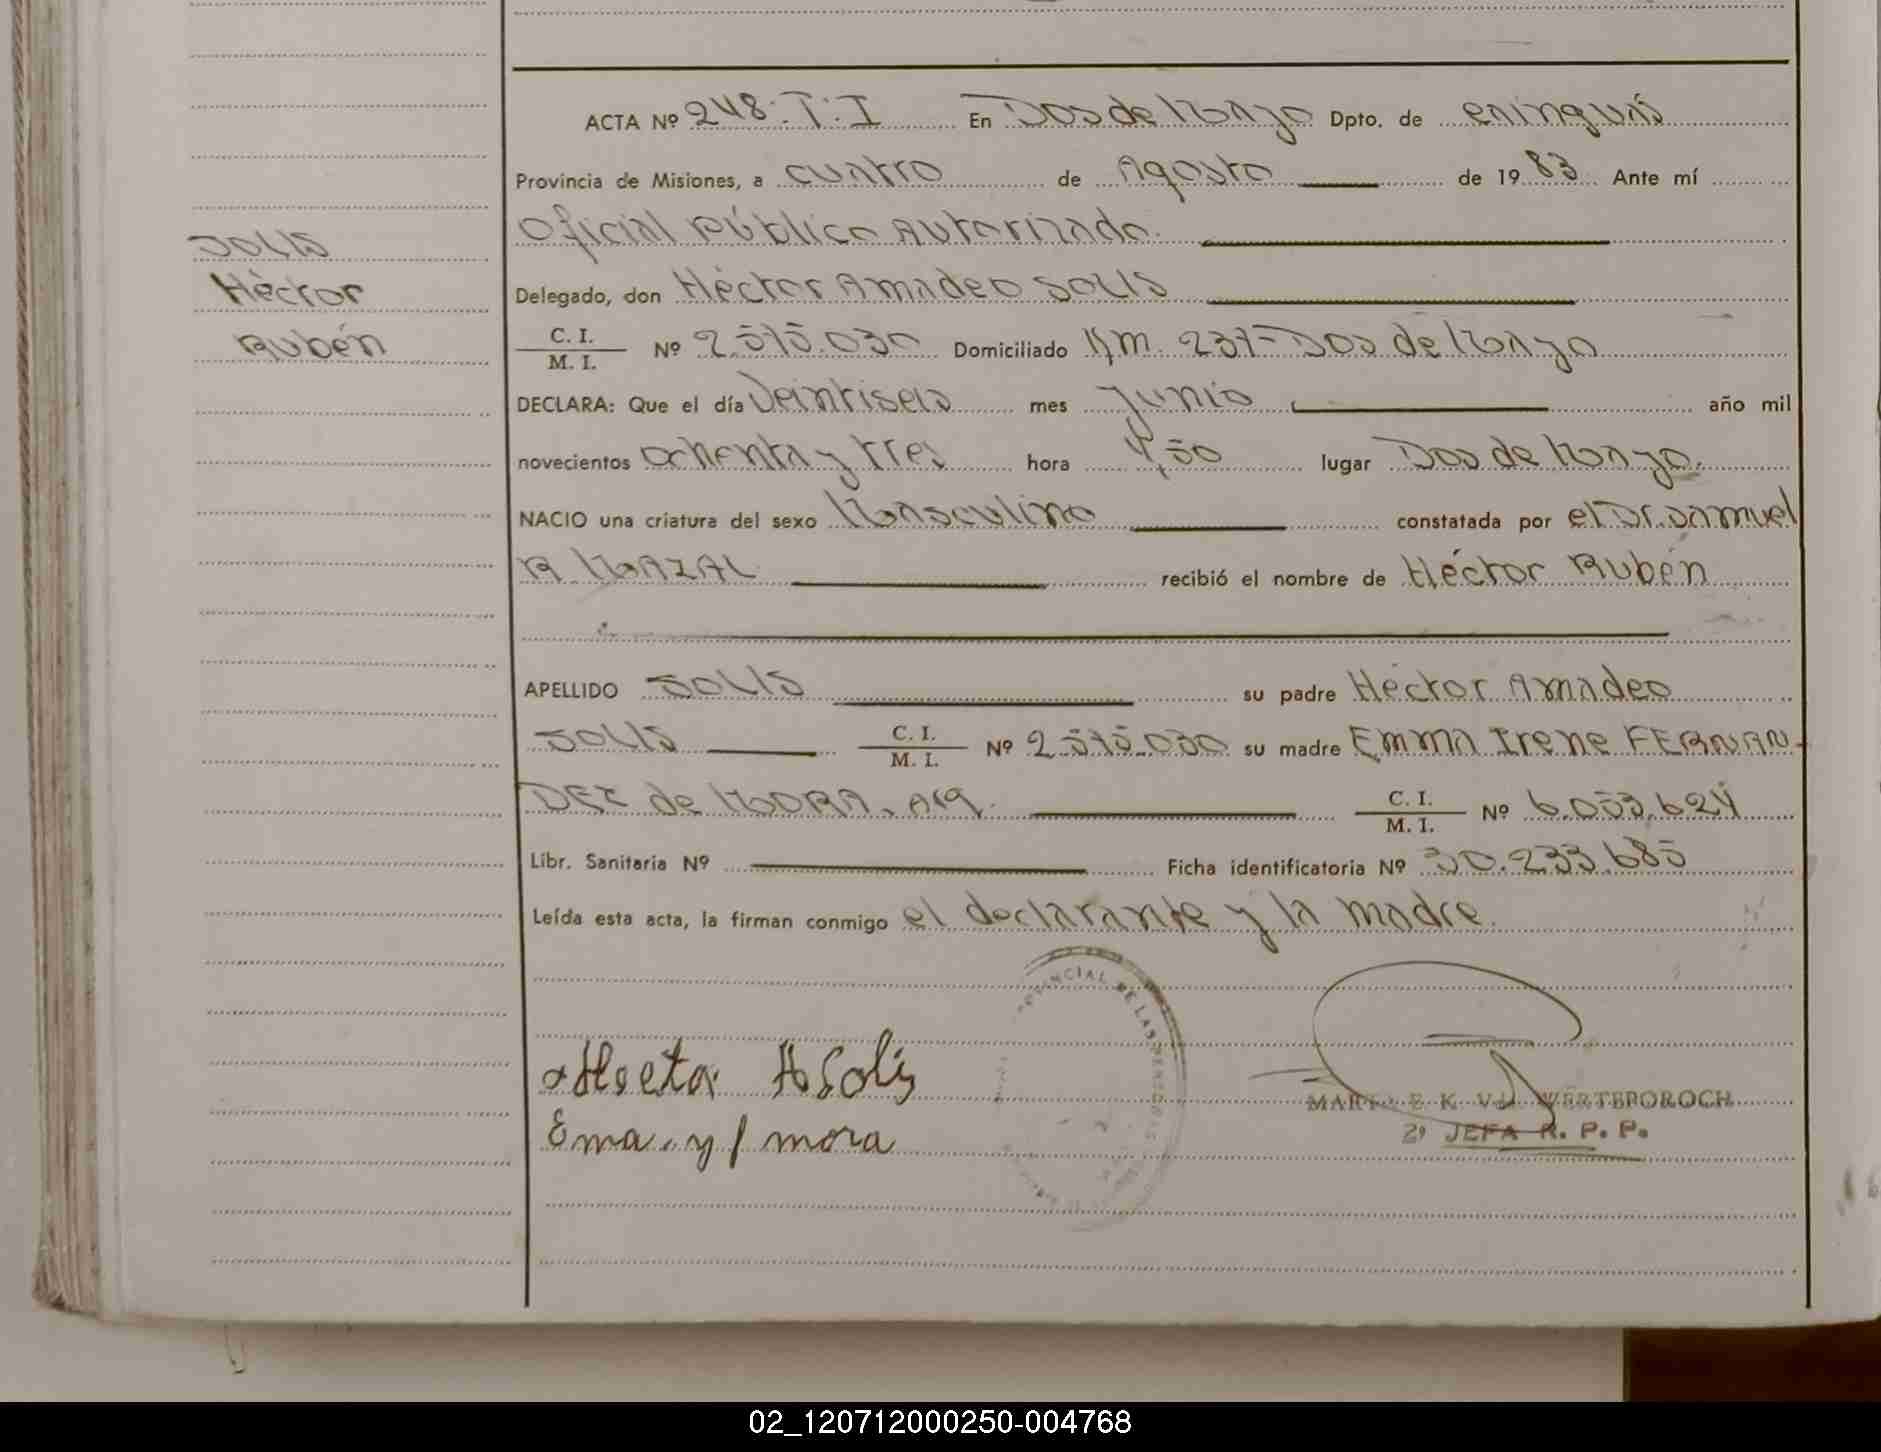 ACTA Nº 248. T. I En Dos de Mayo Dpto. de
Provincia de Misiones, a cuatro de Agosto de 1983 Ante mí
Oficial Público Autorizado.
SOLIS
Héctor
Rubén
Delegado, don Héctor Amadeo SOLIS
C. I.
M. I. Nº 2.575.030 Domiciliado Km. 237-Dos de Mayo
DECLARA: Que el día Veintiseis mes Junio año mil
novecientos ochenta y tres hora 4,50 lugar Dos de Mayo.
NACIO una criatura del sexo Masculino constatada por el Dr. Samuel
R MAZAL recibió el nombre de Héctor Rubén
APELLIDO SOLIS su padre Héctor Amadeo
SOLIS C. I. M. I. Nº 2.575.030 su madre Emma Irene FERNAN-
DEZ de MORA, Arg. C. I. M. I. Nº 6.053.624
Libr. Sanitaria Nº Ficha identificatoria Nº 30.233.685
Leída esta acta, la firman conmigo el declarante y la madre.
PROVINCIAL DE LAS PERSONAS
A Solis
Ema mora
MARTA E. K. Vda. WERTEPOROCH
2º JEFA R. P. P.
02_120712000250-004768